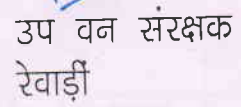 उप वन संरक्षक
रेवाड़ीं